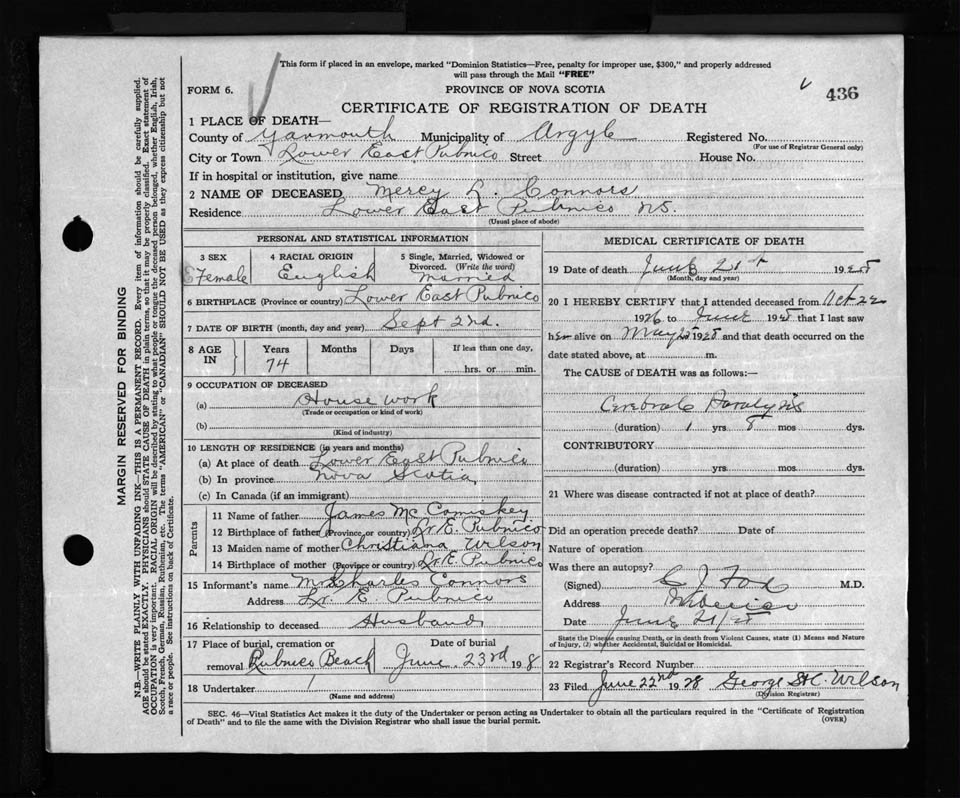 This form if placed in an envelope, marked "Dominion Statistics—Free, penalty for improper use, $300," and properly addressed
will pass through the Mail "FREE"
FORM 6.
PROVINCE OF NOVA SCOTIA
436
CERTIFICATE OF REGISTRATION OF DEATH
1 PLACE OF DEATH—
County of Yarmouth Municipality of Argyle Registered No.
(For use of Registrar General only)
City or Town Lower East Pubnico Street House No.
If in hospital or institution, give name
2 NAME OF DECEASED Mercy L. Connors
Residence Lower East Pubnico N.S.
(Usual place of abode)
PERSONAL AND STATISTICAL INFORMATION
3 SEX
Female
4 RACIAL ORIGIN
English
5 Single, Married, Widowed or
Divorced. (Write the word)
Married
6 BIRTHPLACE (Province or country) Lower East Pubnico
7 DATE OF BIRTH (month, day and year) Sept 2nd.
8 AGE IN
Years
74
Months
Days
If less than one day,
hrs. or min.
9 OCCUPATION OF DECEASED
(a) House work
(Trade or occupation or kind of work)
(b)
(Kind of industry)
10 LENGTH OF RESIDENCE (in years and months)
(a) At place of death Lower East Pubnico
(b) In province Nova Scotia
(c) In Canada (if an immigrant)
Parents
11 Name of father James McComiskey
12 Birthplace of father (Province or country) Lr. E. Pubnico
13 Maiden name of mother Christiana Wilson
14 Birthplace of mother (Province or country) Lr. E. Pubnico
15 Informant's name Charles Connors
Address Lr. E. Pubnico
16 Relationship to deceased Husband
17 Place of burial, cremation or
removal Pubnico Beach
Date of burial
June 23rd 1928
18 Undertaker
(Name and address)
MEDICAL CERTIFICATE OF DEATH
19 Date of death June 21st 1928
(Month, day and year)
20 I HEREBY CERTIFY that I attended deceased from Oct 22
1926 to June 1928 that I last saw
her alive on May 1928 and that death occurred on the
date stated above, at m.
The CAUSE of DEATH was as follows:—
Cerebral Paralysis
(duration) 1 yrs 8 mos dys.
CONTRIBUTORY
(duration) yrs mos dys.
21 Where was disease contracted if not at place of death?
Did an operation precede death? Date of
Nature of operation
Was there an autopsy?
(Signed) C J Fox M.D.
Address
Date June 21/28
State the Disease causing Death, or in death from Violent Causes, state (1) Means and Nature
of Injury, (2) whether Accidental, Suicidal or Homicidal.
22 Registrar's Record Number
23 Filed June 22nd 1928 George St C. Wilson
(Division Registrar)
SEC. 46—Vital Statistics Act makes it the duty of the Undertaker or person acting as Undertaker to obtain all the particulars required in the "Certificate of Registration
of Death" and to file the same with the Division Registrar who shall issue the burial permit.
(OVER)
MARGIN RESERVED FOR BINDING
N.B.—WRITE PLAINLY WITH UNFADING INK—THIS IS A PERMANENT RECORD. Every item of information should be carefully supplied.
AGE should be stated EXACTLY. PHYSICIANS should STATE CAUSE OF DEATH in plain terms, so that it may be properly classified. Exact statement of
OCCUPATION is very important. RACIAL ORIGIN will be described by stating to what people or tongue the deceased person belonged, whether English, Irish,
Scotch, French, German, Russian, Ruthenian, etc. The terms "AMERICAN" or "CANADIAN" SHOULD NOT BE USED as they express citizenship but not
a race or people. See instructions on back of Certificate.